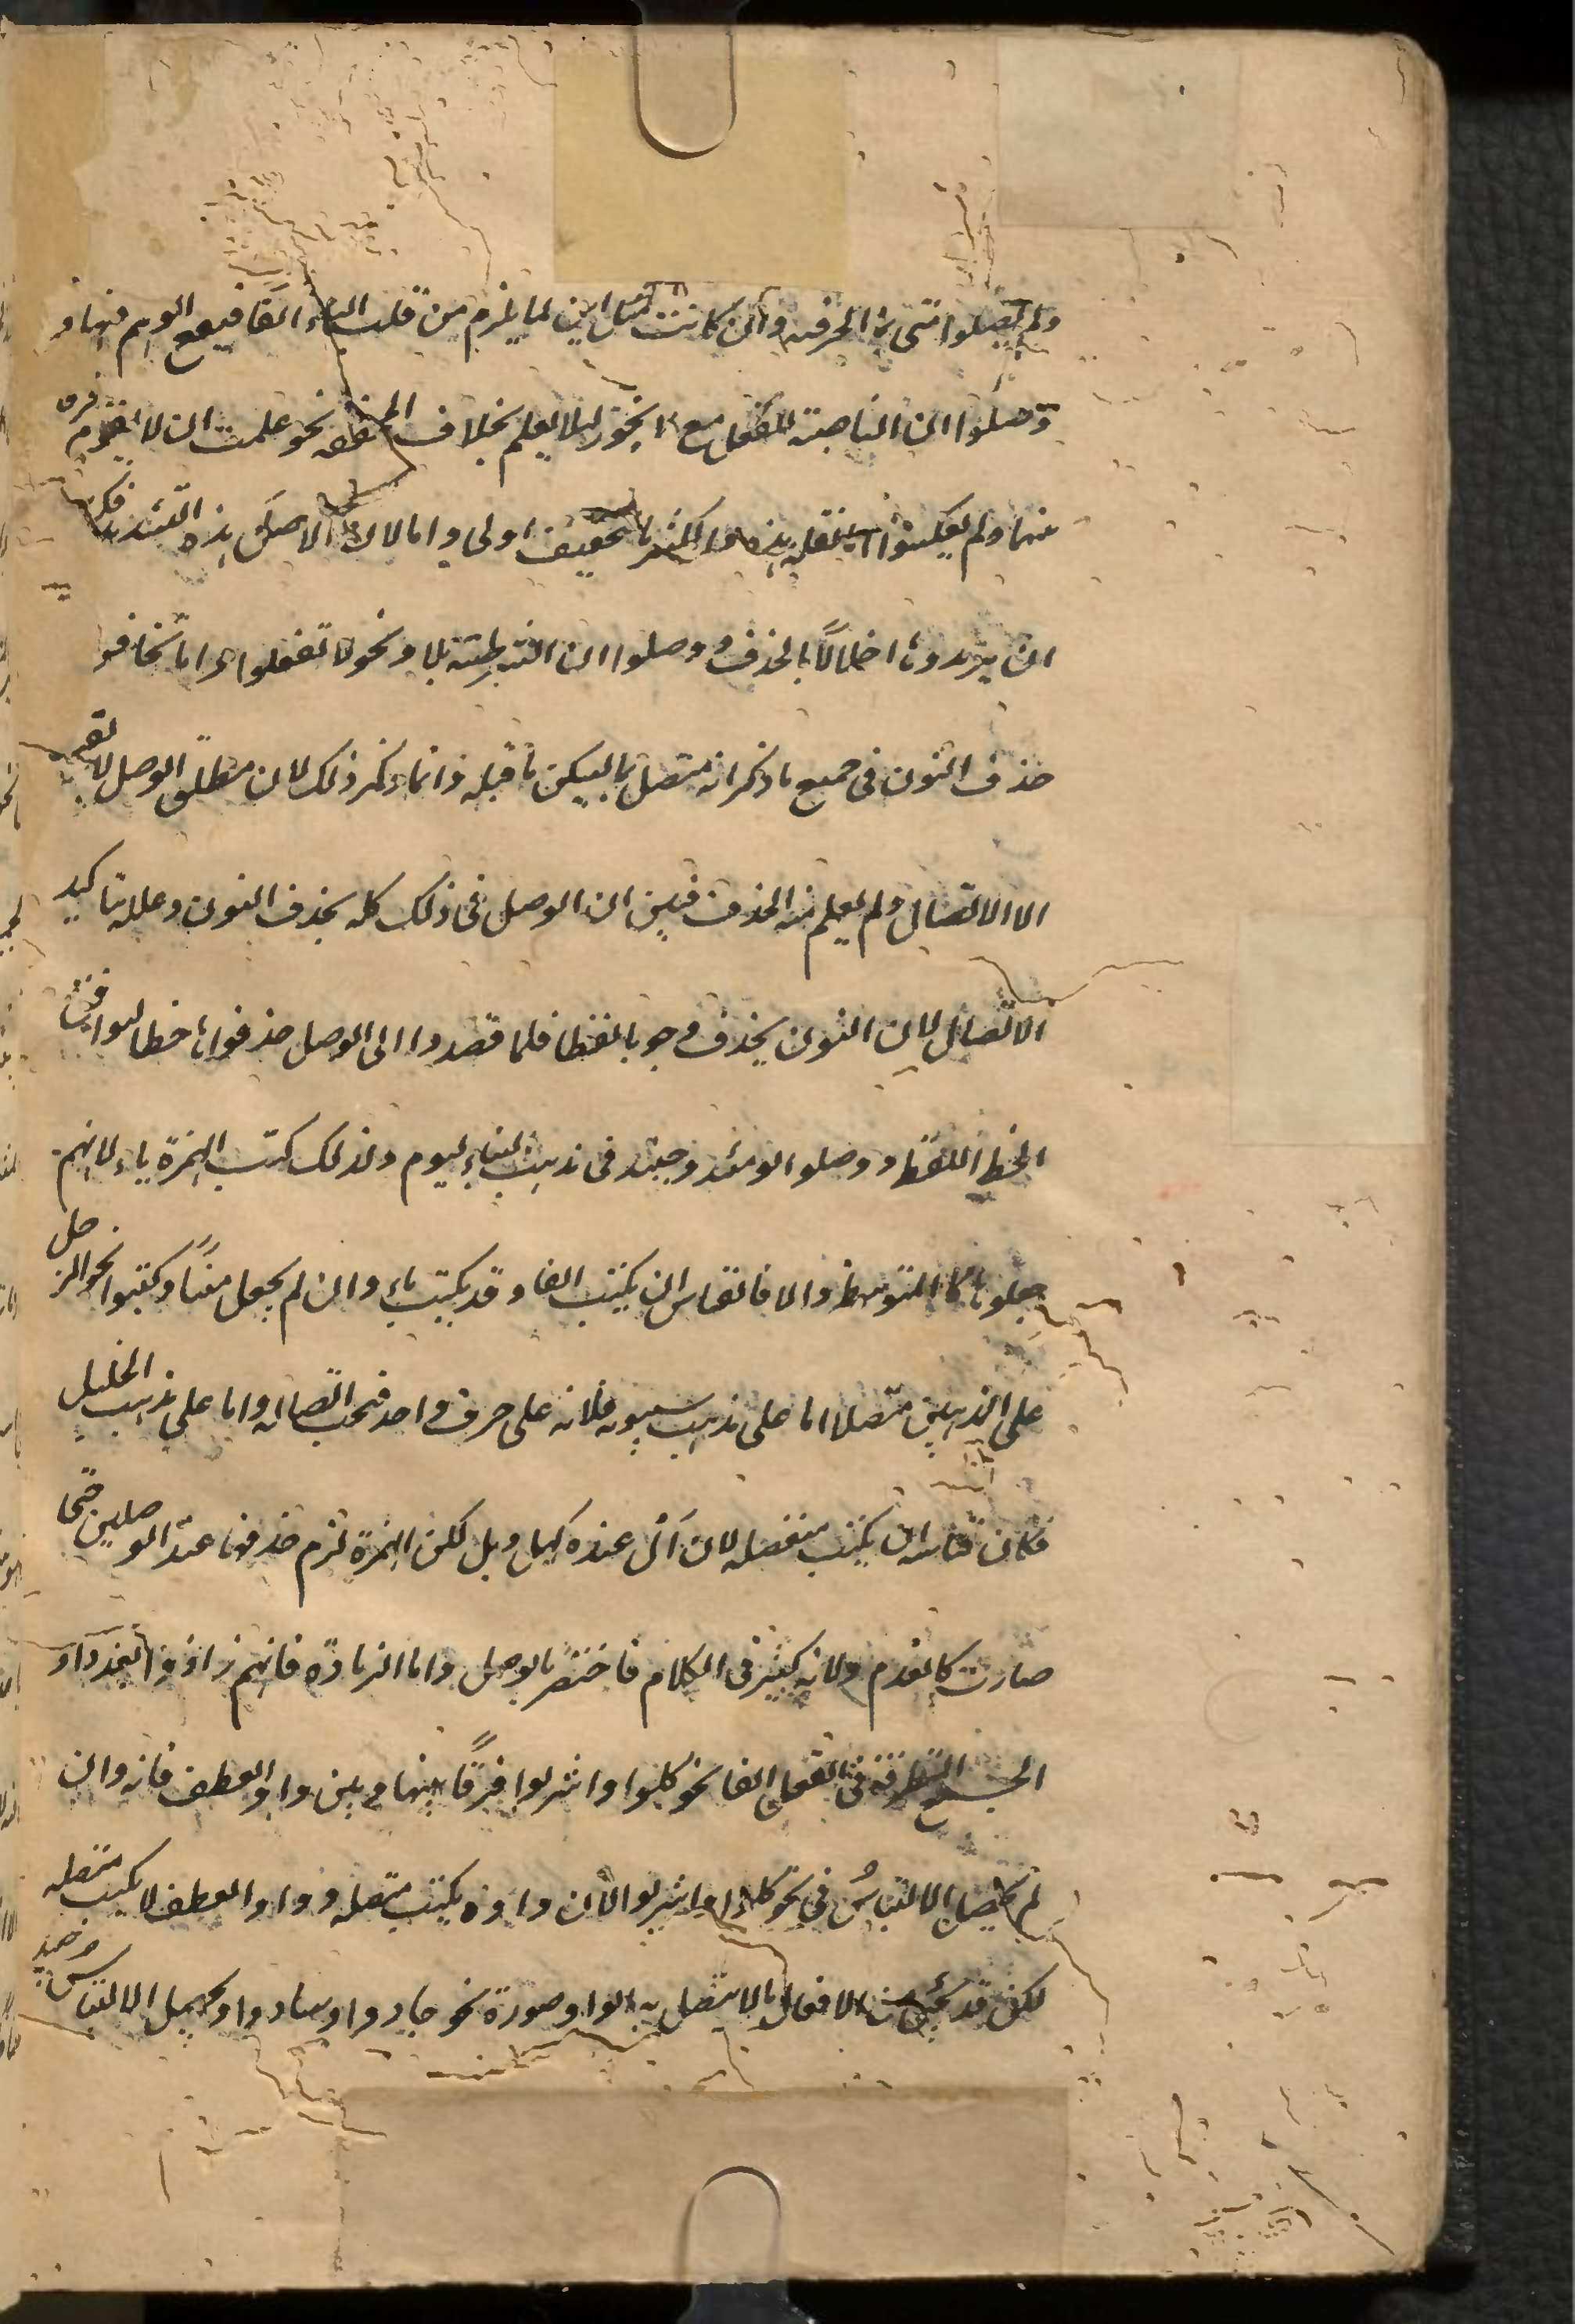 ولم يصلوا متى بما الحرفية وان كانت مثل اين لما يلزم من قلب الياء الفا فيقع الوهم فيها و
وصلوا ان الناصبة للفعل مع لا نحو لئلا يعلم بخلاف المخففة نحو علمت ان لا يقوم فرقا
بينهما ولم يعكسوا لان هذه اكثر فالتخفيف اولى واما لان الاصل هذه التشديد فكرهوا
ان يزيدوها اخلالا بالحذف ووصلوا ان الشرطية بلا وما نحو الا تفعلوا واما تخافن
حذف النون فى جميع ما ذكر انه متصل بما ليس ما قبله وانما ذكر ذلك لان مطلق الوصل لا يفهم
الا الاتصال ولم يعلم منه الحذف فبين ان الوصل فى ذلك كله بحذف النون وعلله بتاكيد
الاتصال لان النون يحذف وجوبا لفظا فلما قصدوا الى الوصل حذفوها خطا ليوافق
الخط اللفظ ووصلوا يومئذ وحينئذ فى مذهب البناء اليوم ولذلك كتب الهمزة ياء لانهم
جعلوها كالمتوسط والا فالقياس ان يكتب الفا وقد يكتب ياء وان لم يجعل مبنيا وكتبوا نحو الرجل
على المذهبين متصلا اما على مذهب سيبويه فلانه على حرف واحد فيجب اتصاله واما على مذهب الخليل
فكان قياسه ان يكتب منفصله لان أل عنده كهل وبل لكن الهمزة لزم حذفها عند الوصل حتى
صارت كالعدم ولانه كثير فى الكلام فاختصر بالوصل واما الزيادة فانهم زادوا بعد واو
الجمع المتطرفة فى الفعل الفا نحو كلوا واشربوا فرقا بينها وبين واو العطف فانه وان
لم يحصل الالتباس فى نحو كلوا واشربوا لان واوه يكتب متصله وواو العطف لا يكتب متصله
لكن قد يجئ من الافعال ما لا يتصل به الواو صورة نحو جادوا وسادوا ويحصل الالتباس وحينئذ